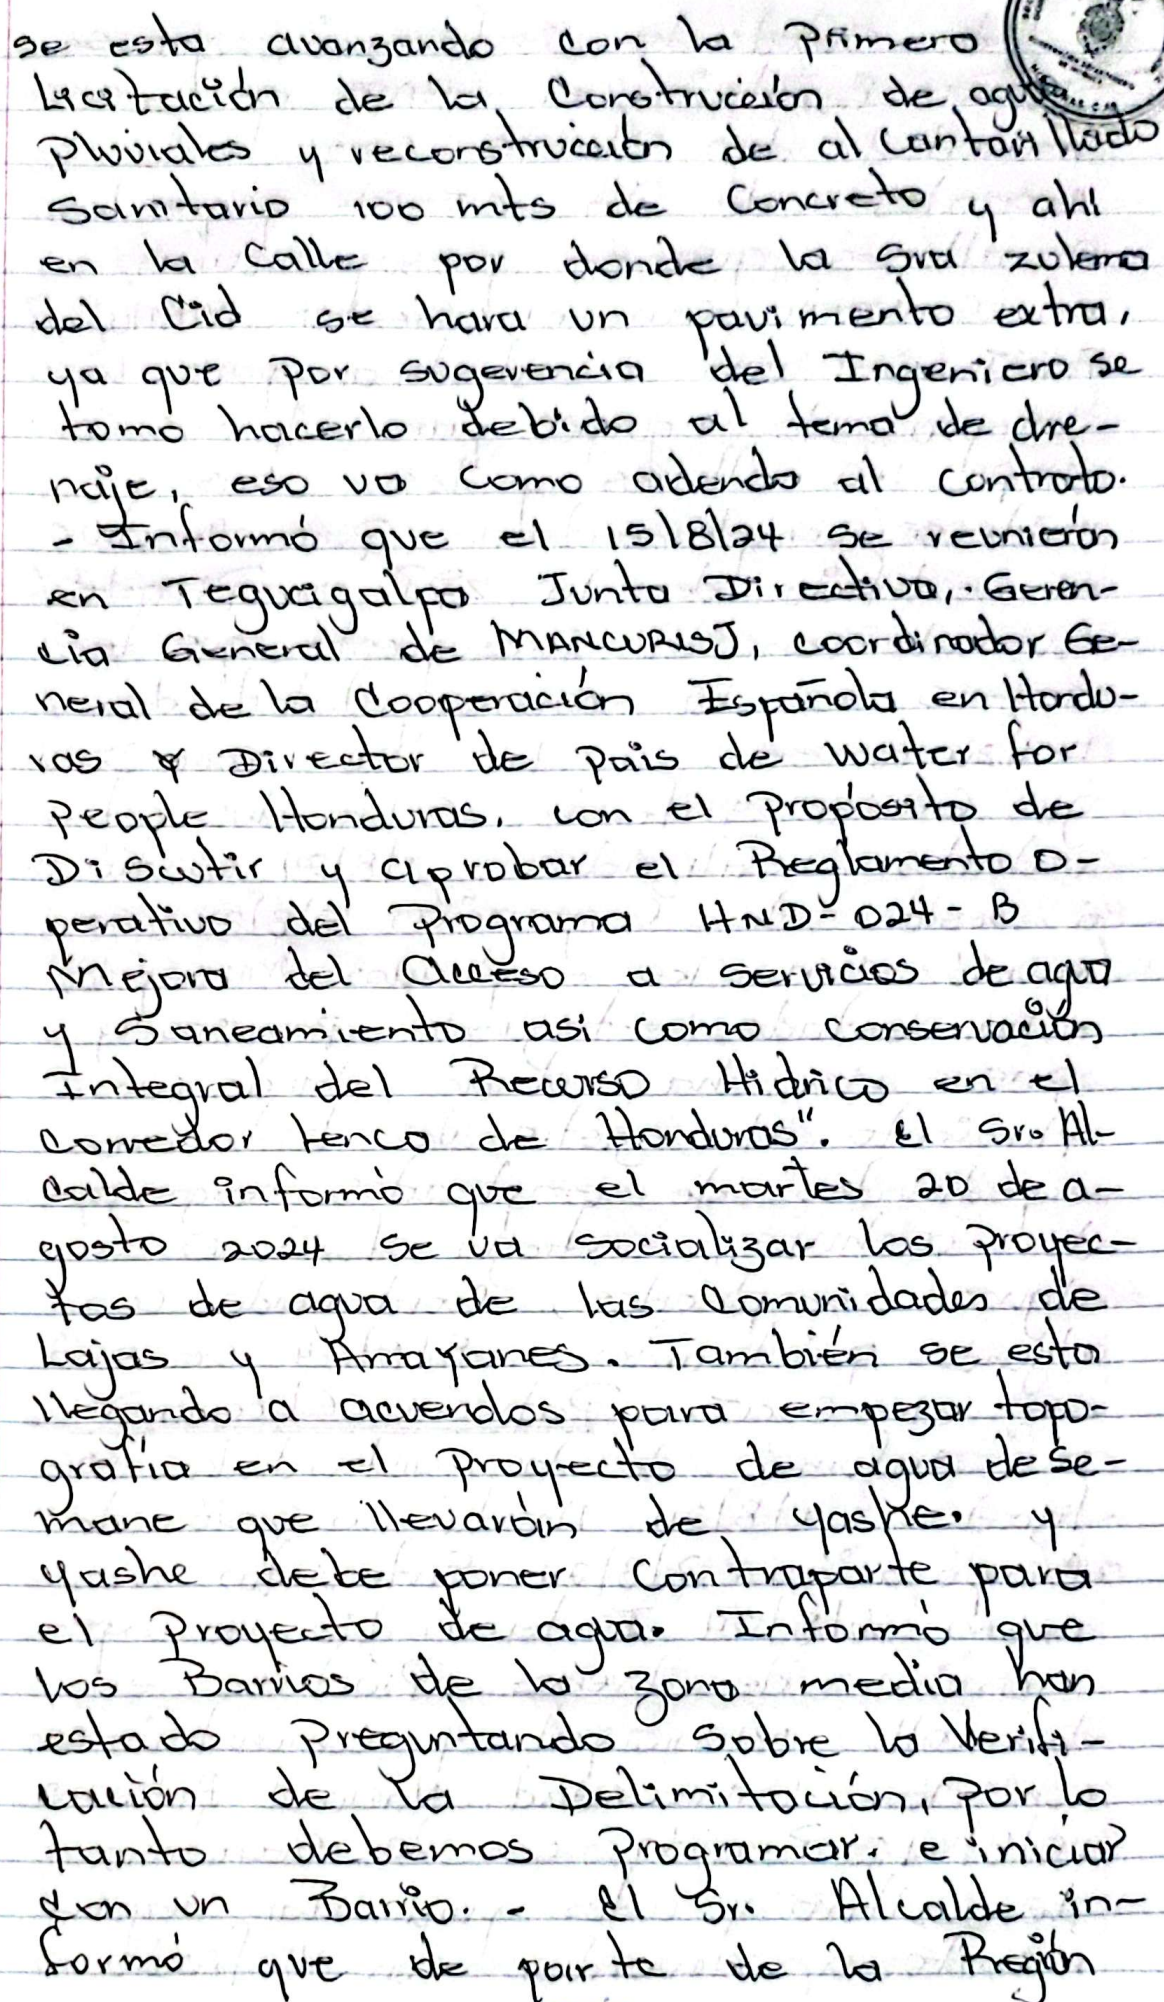 se esta avanzando con la Primera
Licitación de la Construcción de aguas
Pluviales y reconstrucción de alcantarillado
Sanitario 100 mts de Concreto y ahí
en la Calle por donde la Sra Zulema
del Cid se hara un pavimento extra,
ya que por sugerencia del Ingeniero se
tomo hacerlo debido al tema de dre-
naje, eso va como adenda al contrato.
- Informó que el 15/8/24 se reunierón
en Tegucigalpa Junta Directiva, Geren-
cia General de MANCURISJ, coordinador Ge-
neral de la Cooperación Española en Hondu-
ras y Director de País de Water for
People Honduras, con el Proposito de
Discutir y aprobar el Reglamento O-
perativo del Programa HND-024-B
Mejora del Acceso a servicios de agua
y Saneamiento asi como conservación
Integral del Recurso Hidrico en el
corredor lenco de Honduras". El Sr. Al-
calde informó que el martes 20 de a-
gosto 2024 se va socializar los Proyec-
tos de agua de las Comunidades de
Lajas y Arrayanes. También se esta
llegando a acuerdos para empezar topo-
grafía en el Proyecto de agua de Se-
mane que llevarán de yashe. y
yashe debe poner Contraparte para
el Proyecto de agua. Informó que
los Barrios de la zona media han
estado Preguntando Sobre la Verifi-
cación de la Delimitación, Por lo
tanto debemos Programar. e iniciar
con un Barrio. - El Sr. Alcalde in-
formó que de parte de la Región